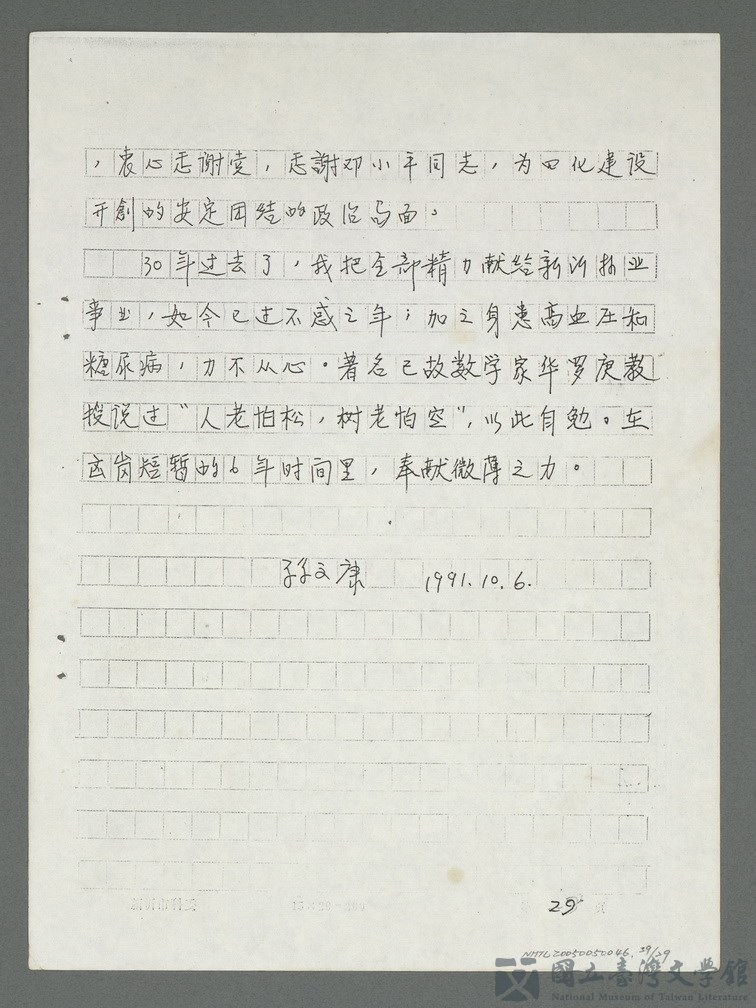 ，衷心感谢党，感謝邓小平同志，为四化建设
开創的安定团结的政治局面。
30年过去了，我把全部精力献给新沂林业
事业，如今已过不惑之年；加之身患高血压和
糖尿病，力不从心。著名已故数学家华罗庚教
授说过"人老怕松，树老怕空"，以此自勉。在
在岗短暂的6年时间里，奉献微薄之力。
孙文康 1991.10.6.
29
NMTL20050050046. 29/29
國立臺灣文學館
National Museum of Taiwan Literature